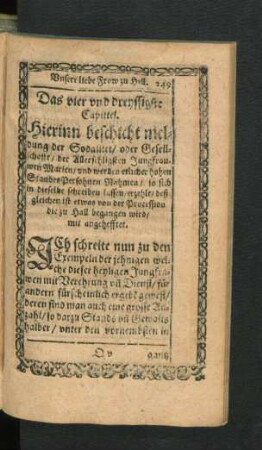 Vnsere liebe Fraw zu Hall. 249
Das vier vnd dreyssigste
Capittel.
Hierinn beschicht mel-
dung der Sodalitet/ oder Gesell-
schafft/ der Allerseligsten Jungfraw-
wen Marien/ vnd werden etlicher hohen
Stands Personen Nahmen/ so sich
in dieselbe schreiben lassen/ erzählt/ deß-
gleichen ist etwas von der Procession
die zu Hall begangen wird/
mit angehefftet.
ICh schreite nun zu den
Exempeln der jehnigen wel-
che dieser heyligen Jungfra-
wen mit Verehrung vñ Dienst/ für
andern fürscheinlich ergebē gewest/
deren sind man auch eine grosse An-
zahl/ so darzu Stands vñ Gewalts
halber/ vnter den vornembsten in
Q v gantz